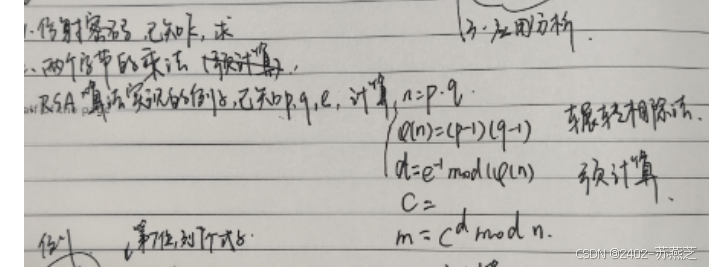 仿射密码,已知k,求
3.应用分析.
两个字节的乘法(预计算).
RSA算法实现的例子,已知p,q,e,计算,n=p·q.
φ(n)=(p-1)(q-1) 辗转相除法.
d=e⁻¹mod(φ(n) 预计算.
C=
m=C^d mod n.
CSDN @2402-苏燕芝